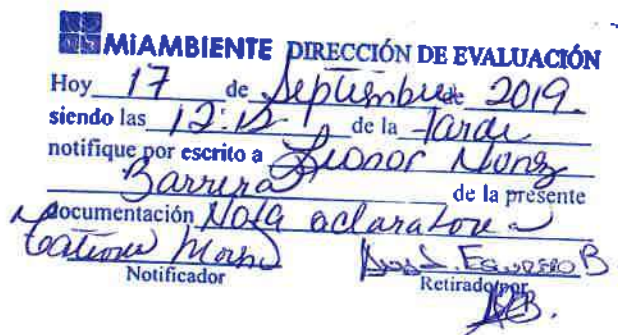 MiAMBIENTE DIRECCIÓN DE EVALUACIÓN
Hoy 17 de Septiembre de 2019.
siendo las 12:12 de la Tarde
notifique por escrito a Leonor
Barrera de la presente
documentación Nota aclaratoria
Notificador Retirado por